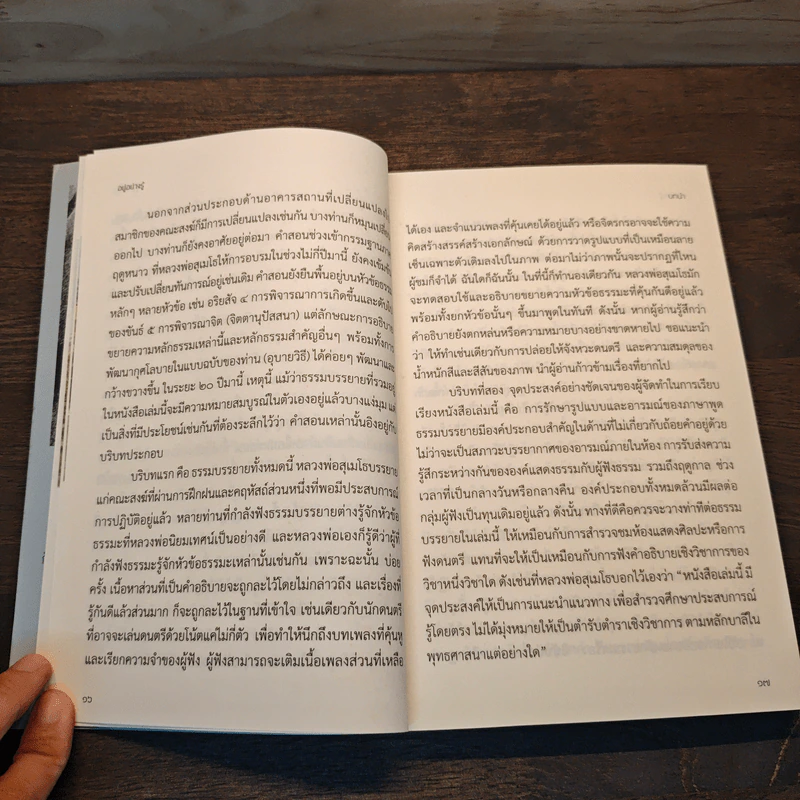 อยู่อย่างรู้
นอกจากส่วนประกอบด้านอาคารสถานที่เปลี่ยนแปลงไป
สมาชิกของคณะสงฆ์ก็มีการเปลี่ยนแปลงเช่นกัน บางท่านก็หมุนเปลี่ยน
ออกไป บางท่านก็ยังคงอาศัยอยู่ต่อมา คำสอนช่วงเข้ากรรมฐานภาค
ฤดูหนาว ที่หลวงพ่อสุเมโธให้การอบรมในช่วงไม่กี่ปีมานี้ ยังคงเข้มข้น
และปรับเปลี่ยนทันการณ์อยู่เช่นเดิม คำสอนยังยืนพื้นอยู่บนหัวข้อธรรม
หลักๆ หลายหัวข้อ เช่น อริยสัจ ๔ การพิจารณาการเกิดขึ้นและดับไป
ของขันธ์ ๕ การพิจารณาจิต (จิตตานุปัสสนา) แต่ลักษณะการอธิบาย
ขยายความหลักธรรมเหล่านี้และหลักธรรมสำคัญอื่นๆ พร้อมทั้งการ
พัฒนากุศโลบายในแบบฉบับของท่าน (อุบายวิธี) ได้ค่อยๆ พัฒนาและ
กว้างขวางขึ้น ในระยะ ๒๐ ปีมานี้ เหตุนี้ แม้ว่าธรรมบรรยายที่รวมอยู่
ในหนังสือเล่มนี้จะมีความหมายสมบูรณ์ในตัวเองอยู่แล้วบางแง่มุม แต่
เป็นสิ่งที่มีประโยชน์เช่นกันที่ต้องระลึกไว้ว่า คำสอนเหล่านั้นอิงอยู่กับ
บริบทประกอบ
บริบทแรก คือ ธรรมบรรยายทั้งหมดนี้ หลวงพ่อสุเมโธบรรยาย
แก่คณะสงฆ์ที่ผ่านการฝึกฝนและคฤหัสถ์ส่วนหนึ่งที่พอมีประสบการณ์
การปฏิบัติอยู่แล้ว หลายท่านที่กำลังฟังธรรมบรรยายต่างรู้จักหัวข้อ
ธรรมะที่หลวงพ่อนิยมเทศน์เป็นอย่างดี และหลวงพ่อเองก็รู้ดีว่าผู้ที่
กำลังฟังธรรมะรู้จักหัวข้อธรรมะเหล่านั้นเช่นกัน เพราะฉะนั้น บ่อย
ครั้ง เนื้อหาส่วนที่เป็นคำอธิบายจะถูกละไว้โดยไม่กล่าวถึง และเรื่องที่
รู้กันดีแล้วส่วนมาก ก็จะถูกละไว้ในฐานที่เข้าใจ เช่นเดียวกับนักดนตรี
ที่อาจจะเล่นดนตรีด้วยโน้ตแค่ไม่กี่ตัว เพื่อทำให้นึกถึงบทเพลงที่คุ้นหู
และเรียกความจำของผู้ฟัง ผู้ฟังสามารถจะเติมเนื้อเพลงส่วนที่เหลือ
๑๖
บทนำ
ได้เอง และจำแนกเพลงที่คุ้นเคยได้อยู่แล้ว หรือจิตรกรอาจจะใช้ความ
คิดสร้างสรรค์สร้างเอกลักษณ์ ด้วยการวาดรูปแบบที่เป็นเหมือนลาย
เซ็นเฉพาะตัวเติมลงไปในภาพ ต่อมาไม่ว่าภาพนั้นจะปรากฏที่ไหน
ผู้ชมก็จำได้ ฉันใดก็ฉันนั้น ในที่นี้ก็ทำนองเดียวกัน หลวงพ่อสุเมโธมัก
จะทดสอบใช้และอธิบายขยายความหัวข้อธรรมะที่คุ้นกันดีอยู่แล้ว
พร้อมทั้งยกหัวข้อนั้นๆ ขึ้นมาพูดในทันที ดังนั้น หากผู้อ่านรู้สึกว่า
คำอธิบายยังตกหล่นหรือความหมายบางอย่างขาดหายไป ขอแนะนำ
ว่า ให้ทำเช่นเดียวกับการปล่อยให้จังหวะดนตรี และความสมดุลของ
น้ำหนักสีและสีสันของภาพ นำผู้อ่านก้าวข้ามเรื่องที่ยากไป
บริบทที่สอง จุดประสงค์อย่างชัดเจนของผู้จัดทำในการเรียบ
เรียงหนังสือเล่มนี้ คือ การรักษารูปแบบและอารมณ์ของภาษาพูด
ธรรมบรรยายมีองค์ประกอบสำคัญในด้านที่ไม่เกี่ยวกับถ้อยคำอยู่ด้วย
ไม่ว่าจะเป็นสภาวะบรรยากาศของอารมณ์ภายในห้อง การรับส่งความ
รู้สึกระหว่างกันขององค์แสดงธรรมกับผู้ฟังธรรม รวมถึงฤดูกาล ช่วง
เวลาที่เป็นกลางวันหรือกลางคืน องค์ประกอบทั้งหมดล้วนมีผลต่อ
กลุ่มผู้ฟังเป็นทุนเดิมอยู่แล้ว ดังนั้น ทางที่ดีคือควรจะวางท่าทีต่อธรรม
บรรยายในเล่มนี้ ให้เหมือนกับการสำรวจชมห้องแสดงศิลปะหรือการ
ฟังดนตรี แทนที่จะให้เป็นเหมือนกับการฟังคำอธิบายเชิงวิชาการของ
วิชาหนึ่งวิชาใด ดังเช่นที่หลวงพ่อสุเมโธบอกไว้เองว่า “หนังสือเล่มนี้ มี
จุดประสงค์ให้เป็นการแนะนำแนวทาง เพื่อสำรวจศึกษาประสบการณ์
รู้โดยตรง ไม่ได้มุ่งหมายให้เป็นตำรับตำราเชิงวิชาการ ตามหลักบาลีใน
พุทธศาสนาแต่อย่างใด”
๑๗